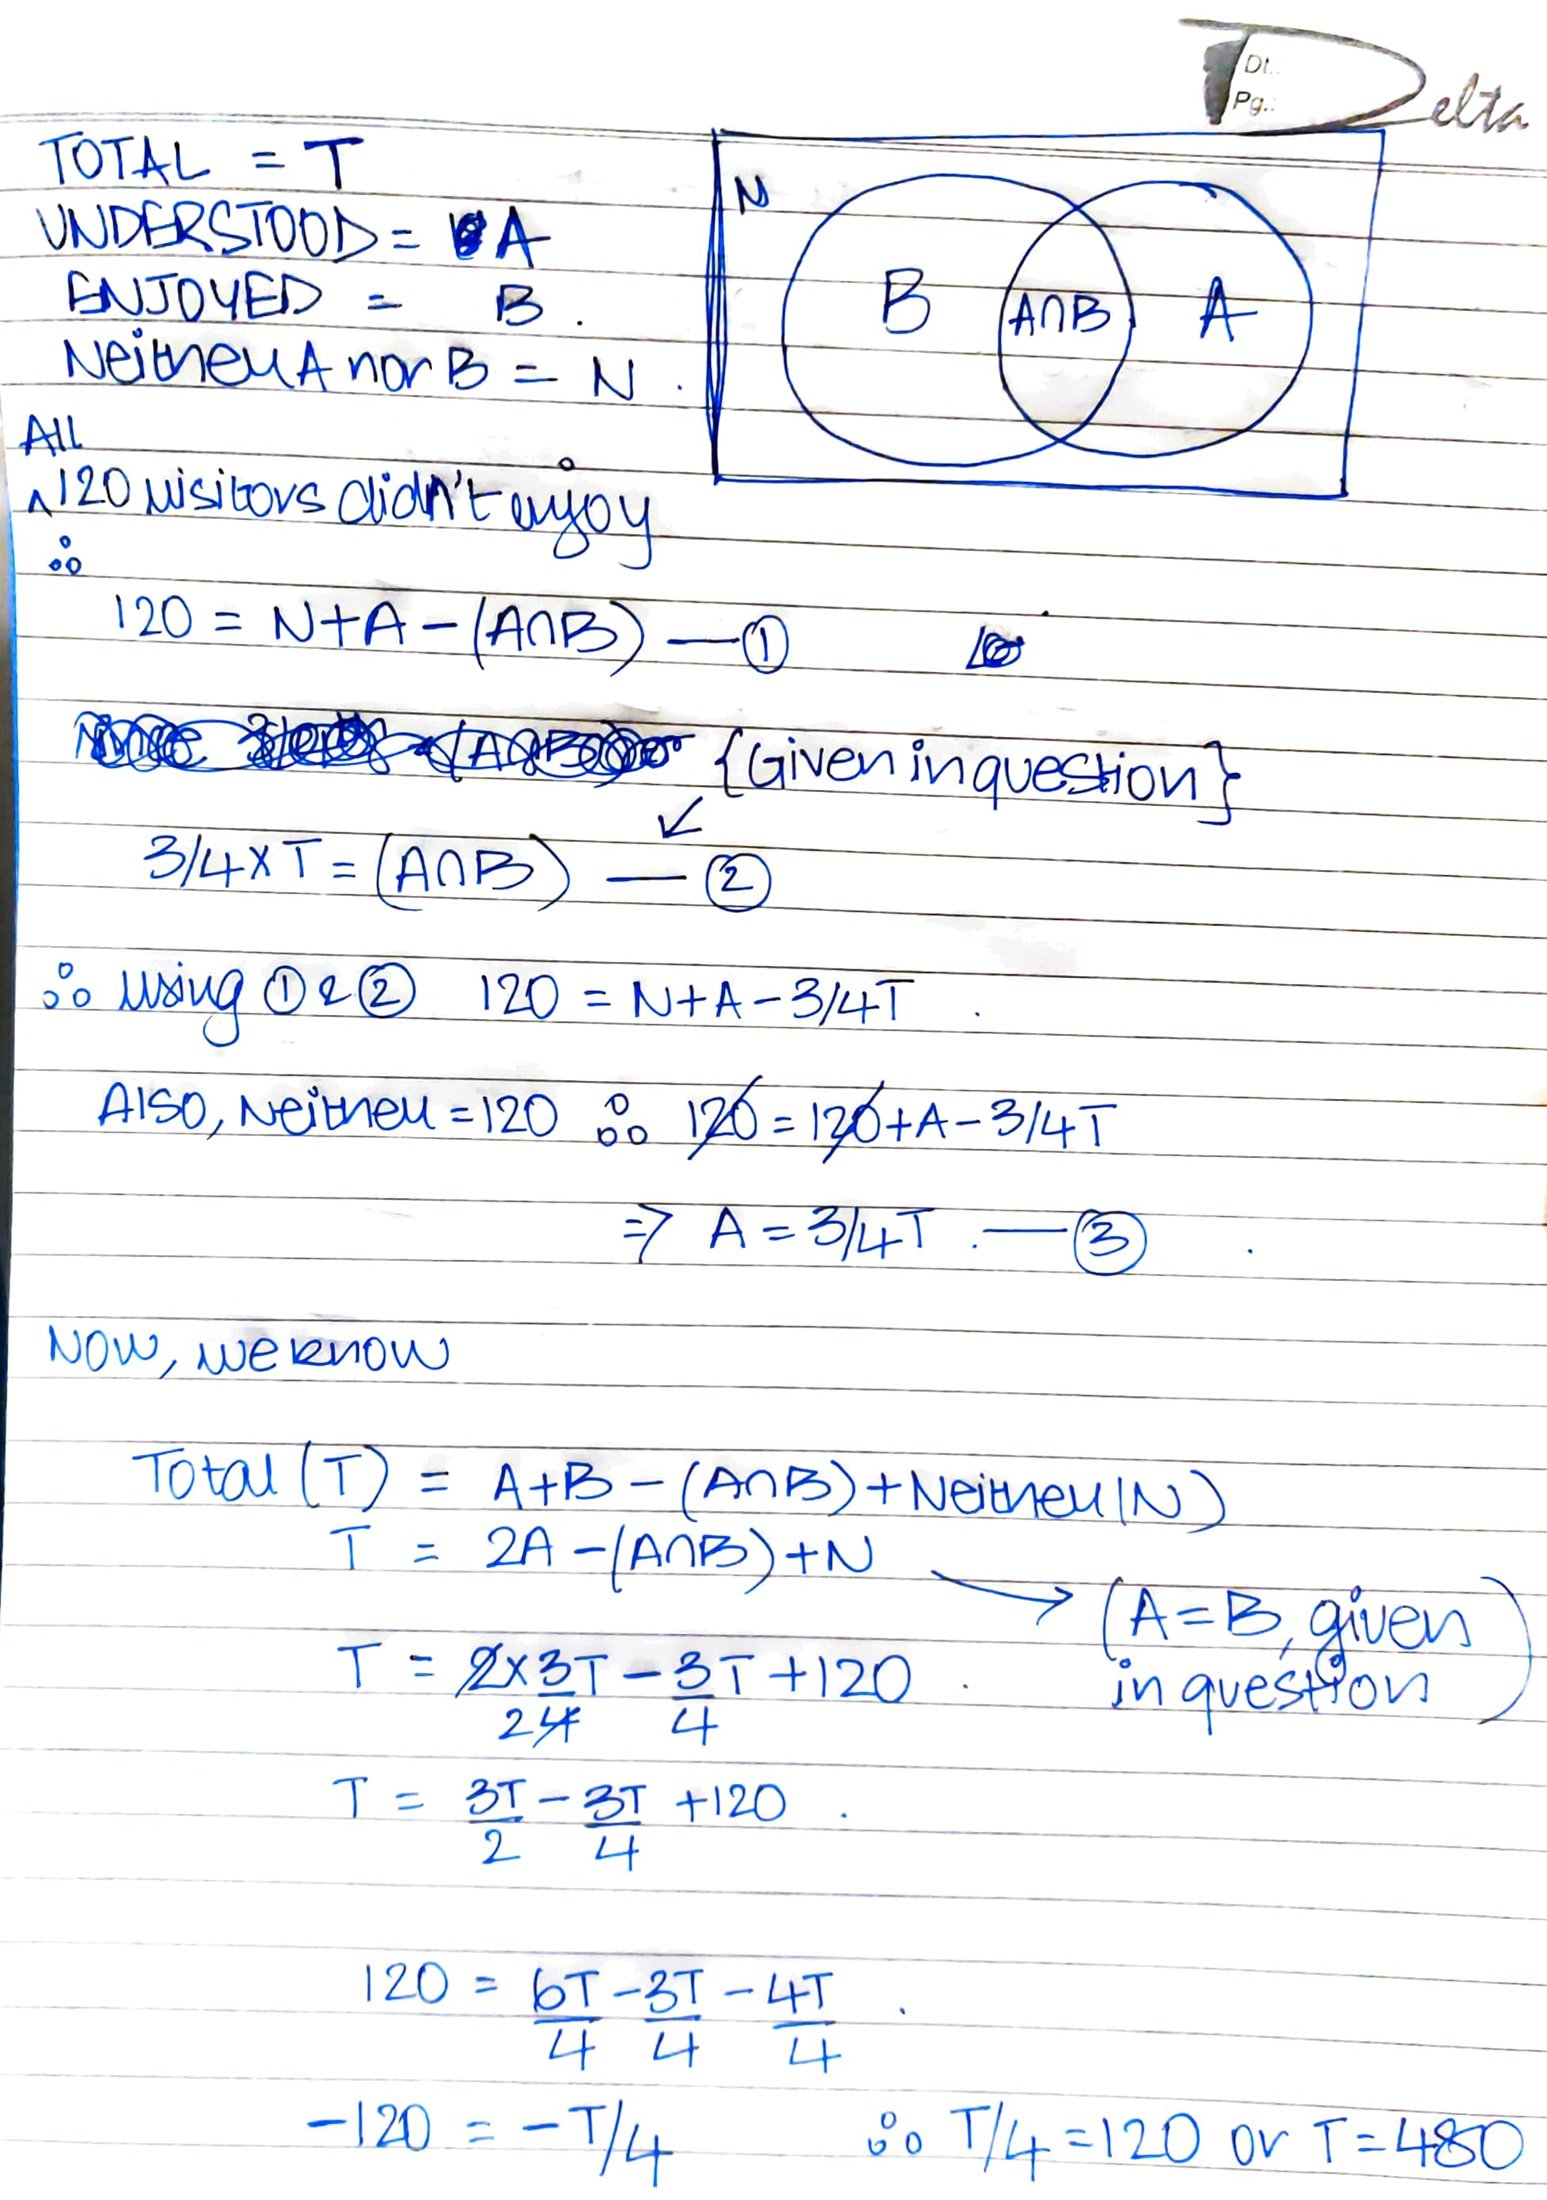 Delta
Dt.:
Pg.:
TOTAL = T
UNDERSTOOD = A
ENJOYED = B.
Neither A nor B = N.
N
B
A∩B
A
All
^120 visitors didn't enjoy
∴
120 = N+A-(A∩B) —①
{Given in question}
↙
3/4×T = (A∩B) —②
∴ using ① & ② 120 = N+A-3/4T.
Also, Neither = 120 ∴ 120 = 120+A-3/4T
⇒ A = 3/4T. —③
Now, we know
Total (T) = A+B-(A∩B)+Neither(N)
T = 2A-(A∩B)+N
→ (A=B, given
in question)
T = 2×3T/24 - 3T/4 + 120.
T = 3T/2 - 3T/4 + 120.
120 = 6T/4 - 3T/4 - 4T/4.
-120 = -T/4 ∴ T/4 = 120 or T = 480